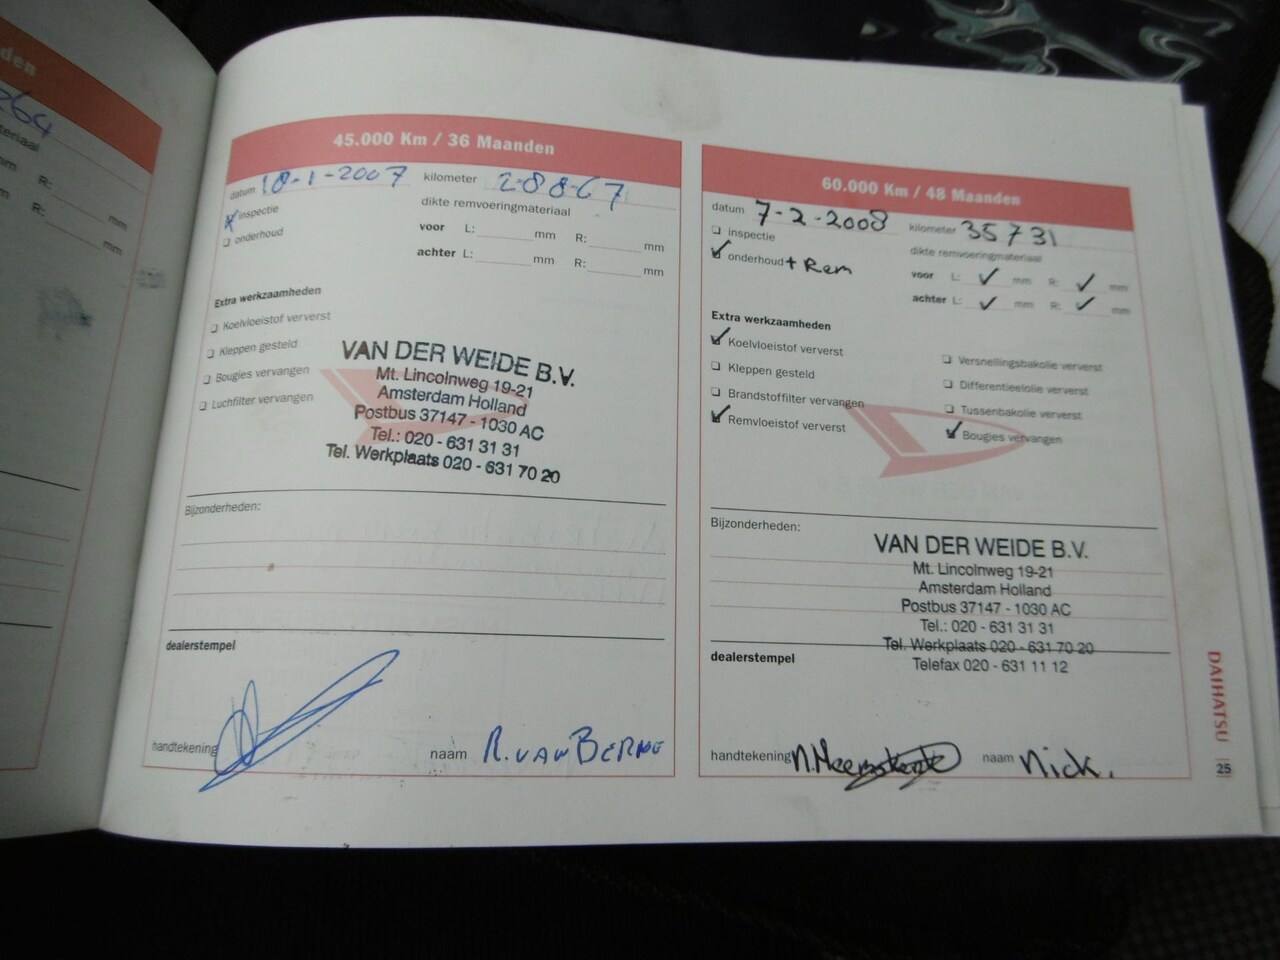 den
264
teriaal
mm R: mm
m R: mm
45.000 Km / 36 Maanden
datum 18-1-2007 kilometer 28867
inspectie dikte remvoeringmateriaal
onderhoud voor L: mm R: mm
achter L: mm R: mm
Extra werkzaamheden
Koelvloeistof ververst
Kleppen gesteld
Bougies vervangen
Luchfilter vervangen
VAN DER WEIDE B.V.
Mt. Lincolnweg 19-21
Amsterdam Holland
Postbus 37147 - 1030 AC
Tel.: 020 - 631 31 31
Tel. Werkplaats 020 - 631 70 20
Bijzonderheden:
dealerstempel
handtekening naam R. VAN BERME
60.000 Km / 48 Maanden
datum 7-2-2008 kilometer 35731
inspectie dikte remvoeringmateriaal
onderhoud + Rem voor L: ✓ mm R: ✓ mm
achter L: ✓ mm R: ✓ mm
Extra werkzaamheden
Koelvloeistof ververst Versnellingsbakolie ververst
Kleppen gesteld Differentieelolie ververst
Brandstoffilter vervangen Tussenbakolie ververst
Remvloeistof ververst Bougies vervangen
Bijzonderheden:
VAN DER WEIDE B.V.
Mt. Lincolnweg 19-21
Amsterdam Holland
Postbus 37147 - 1030 AC
Tel.: 020 - 631 31 31
Tel. Werkplaats 020 - 631 70 20
Telefax 020 - 631 11 12
dealerstempel
handtekening naam Nick.
DAIHATSU
25